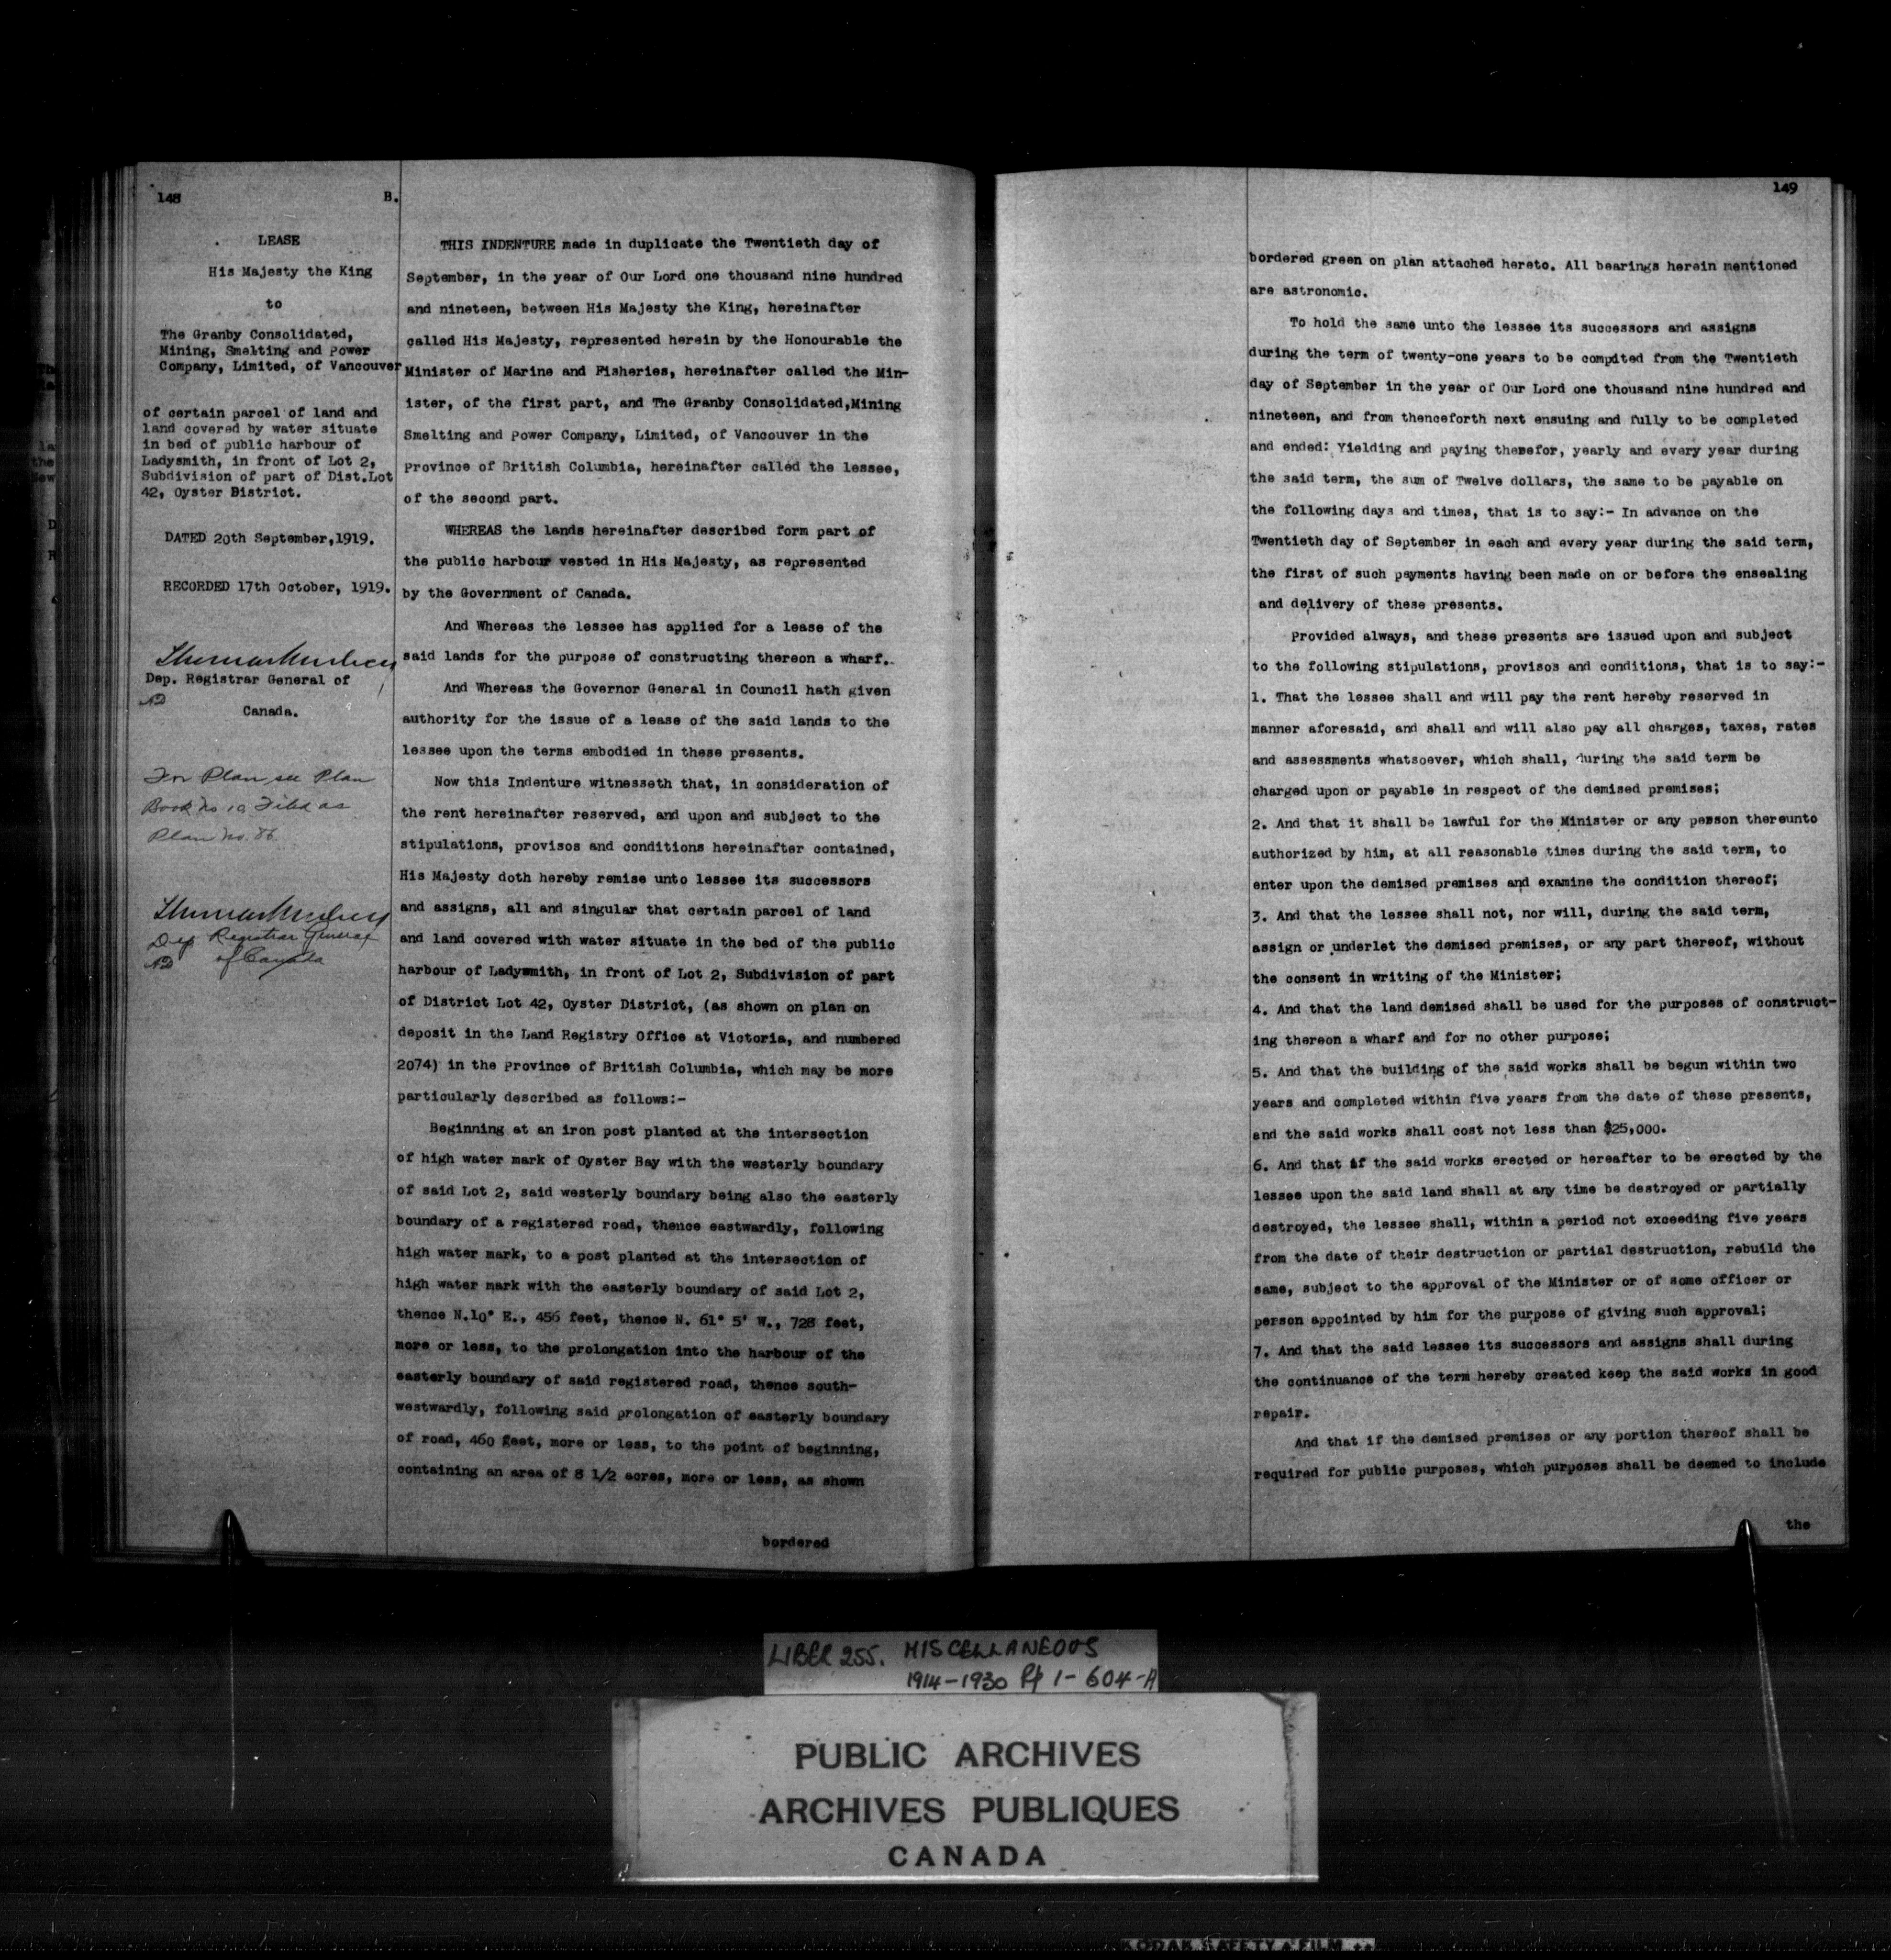 148
B.
LEASE
His Majesty the King
to
The Granby Consolidated,
Mining, Smelting and Power
Company, Limited, of Vancouver
of certain parcel of land and
land covered by water situate
in bed of public harbour of
Ladysmith, in front of Lot 2,
Subdivision of part of Dist.Lot
42, Oyster District.
DATED 20th September,1919.
RECORDED 17th October, 1919.
Dep. Registrar General of
Canada.
For Plan see Plan
Book No 10 Filed as
Plan No. 86
Dep Registrar General
of Canada
THIS INDENTURE made in duplicate the Twentieth day of
September, in the year of Our Lord one thousand nine hundred
and nineteen, between His Majesty the King, hereinafter
called His Majesty, represented herein by the Honourable the
Minister of Marine and Fisheries, hereinafter called the Min-
ister, of the first part, and The Granby Consolidated,Mining
Smelting and Power Company, Limited, of Vancouver in the
Province of British Columbia, hereinafter called the lessee,
of the second part.
WHEREAS the lands hereinafter described form part of
the public harbour vested in His Majesty, as represented
by the Government of Canada.
And Whereas the lessee has applied for a lease of the
said lands for the purpose of constructing thereon a wharf.
And Whereas the Governor General in Council hath given
authority for the issue of a lease of the said lands to the
lessee upon the terms embodied in these presents.
Now this Indenture witnesseth that, in consideration of
the rent hereinafter reserved, and upon and subject to the
stipulations, provisos and conditions hereinafter contained,
His Majesty doth hereby remise unto lessee its successors
and assigns, all and singular that certain parcel of land
and land covered with water situate in the bed of the public
harbour of Ladysmith, in front of Lot 2, Subdivision of part
of District Lot 42, Oyster District, (as shown on plan on
deposit in the Land Registry Office at Victoria, and numbered
2074) in the Province of British Columbia, which may be more
particularly described as follows:-
Beginning at an iron post planted at the intersection
of high water mark of Oyster Bay with the westerly boundary
of said Lot 2, said westerly boundary being also the easterly
boundary of a registered road, thence eastwardly, following
high water mark, to a post planted at the intersection of
high water mark with the easterly boundary of said Lot 2,
thence N.10° E., 456 feet, thence N. 61° 5' W., 728 feet,
more or less, to the prolongation into the harbour of the
easterly boundary of said registered road, thence south-
westwardly, following said prolongation of easterly boundary
of road, 460 feet, more or less, to the point of beginning,
containing an area of 8 1/2 acres, more or less, as shown
bordered
149
bordered green on plan attached hereto. All bearings herein mentioned
are astronomic.
To hold the same unto the lessee its successors and assigns
during the term of twenty-one years to be computed from the Twentieth
day of September in the year of Our Lord one thousand nine hundred and
nineteen, and from thenceforth next ensuing and fully to be completed
and ended: Yielding and paying therefor, yearly and every year during
the said term, the sum of Twelve dollars, the same to be payable on
the following days and times, that is to say:- In advance on the
Twentieth day of September in each and every year during the said term,
the first of such payments having been made on or before the ensealing
and delivery of these presents.
Provided always, and these presents are issued upon and subject
to the following stipulations, provisos and conditions, that is to say:-
1. That the lessee shall and will pay the rent hereby reserved in
manner aforesaid, and shall and will also pay all charges, taxes, rates
and assessments whatsoever, which shall, during the said term be
charged upon or payable in respect of the demised premises;
2. And that it shall be lawful for the Minister or any person thereunto
authorized by him, at all reasonable times during the said term, to
enter upon the demised premises and examine the condition thereof;
3. And that the lessee shall not, nor will, during the said term,
assign or underlet the demised premises, or any part thereof, without
the consent in writing of the Minister;
4. And that the land demised shall be used for the purposes of construct-
ing thereon a wharf and for no other purpose;
5. And that the building of the said works shall be begun within two
years and completed within five years from the date of these presents,
and the said works shall cost not less than $25,000.
6. And that if the said works erected or hereafter to be erected by the
lessee upon the said land shall at any time be destroyed or partially
destroyed, the lessee shall, within a period not exceeding five years
from the date of their destruction or partial destruction, rebuild the
same, subject to the approval of the Minister or of some officer or
person appointed by him for the purpose of giving such approval;
7. And that the said lessee its successors and assigns shall during
the continuance of the term hereby created keep the said works in good
repair.
And that if the demised premises or any portion thereof shall be
required for public purposes, which purposes shall be deemed to include
the
LIBER 255. MISCELLANEOUS
1914-1930 Pp 1-604-A
PUBLIC ARCHIVES
ARCHIVES PUBLIQUES
CANADA
KODAK SAFETY FILM